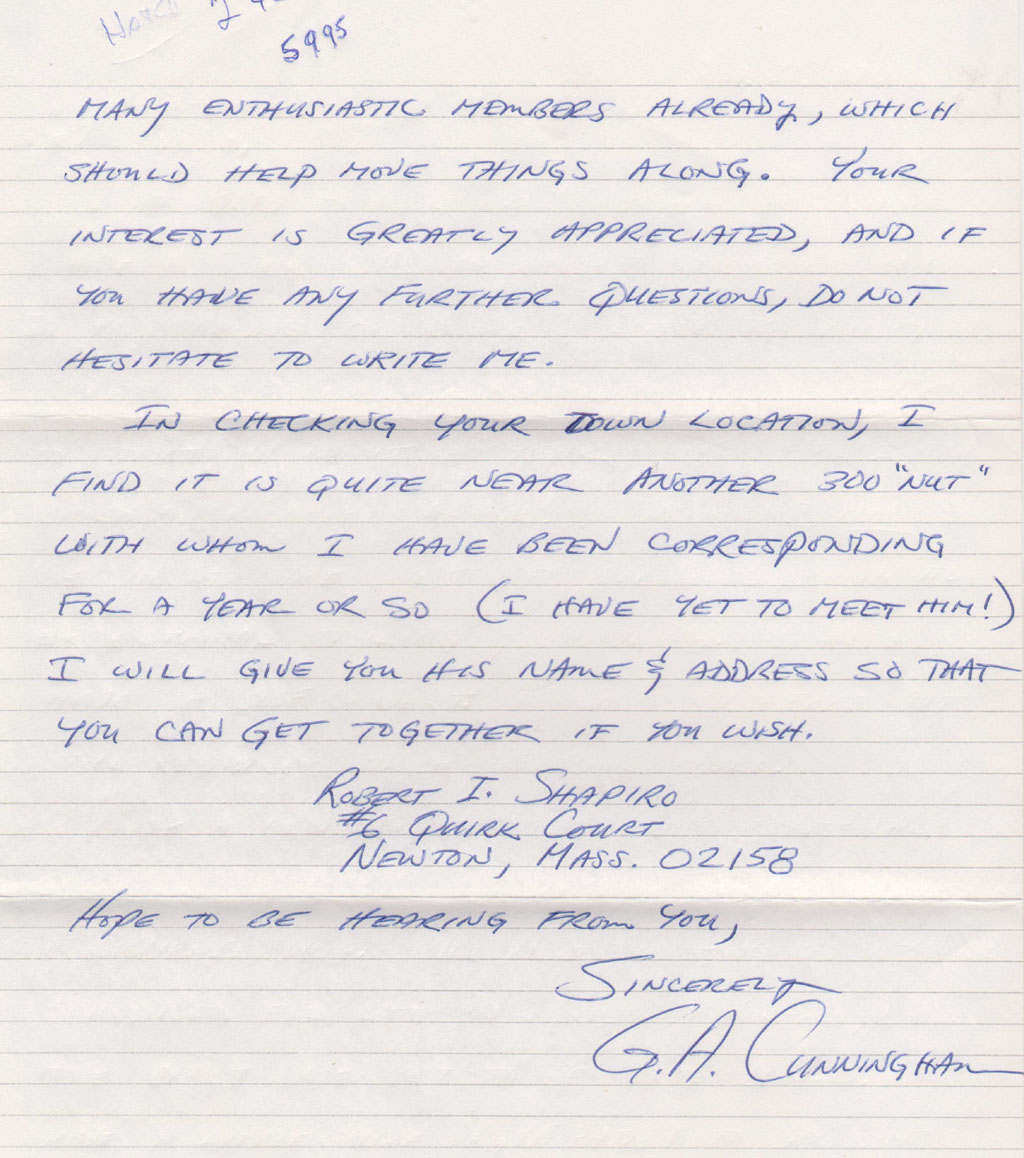 5995
MANY ENTHUSIASTIC MEMBERS ALREADY, WHICH
SHOULD HELP MOVE THINGS ALONG. YOUR
INTEREST IS GREATLY APPRECIATED, AND IF
YOU HAVE ANY FURTHER QUESTIONS, DO NOT
HESITATE TO WRITE ME.
IN CHECKING YOUR TOWN LOCATION, I
FIND IT IS QUITE NEAR ANOTHER 300 "NUT"
WITH WHOM I HAVE BEEN CORRESPONDING
FOR A YEAR OR SO (I HAVE YET TO MEET HIM!)
I WILL GIVE YOU HIS NAME & ADDRESS SO THAT
YOU CAN GET TOGETHER IF YOU WISH.
ROBERT I. SHAPIRO
#6 QUIRK COURT
NEWTON, MASS. 02158
HOPE TO BE HEARING FROM YOU,
SINCERELY
G.A. CUNNINGHAM